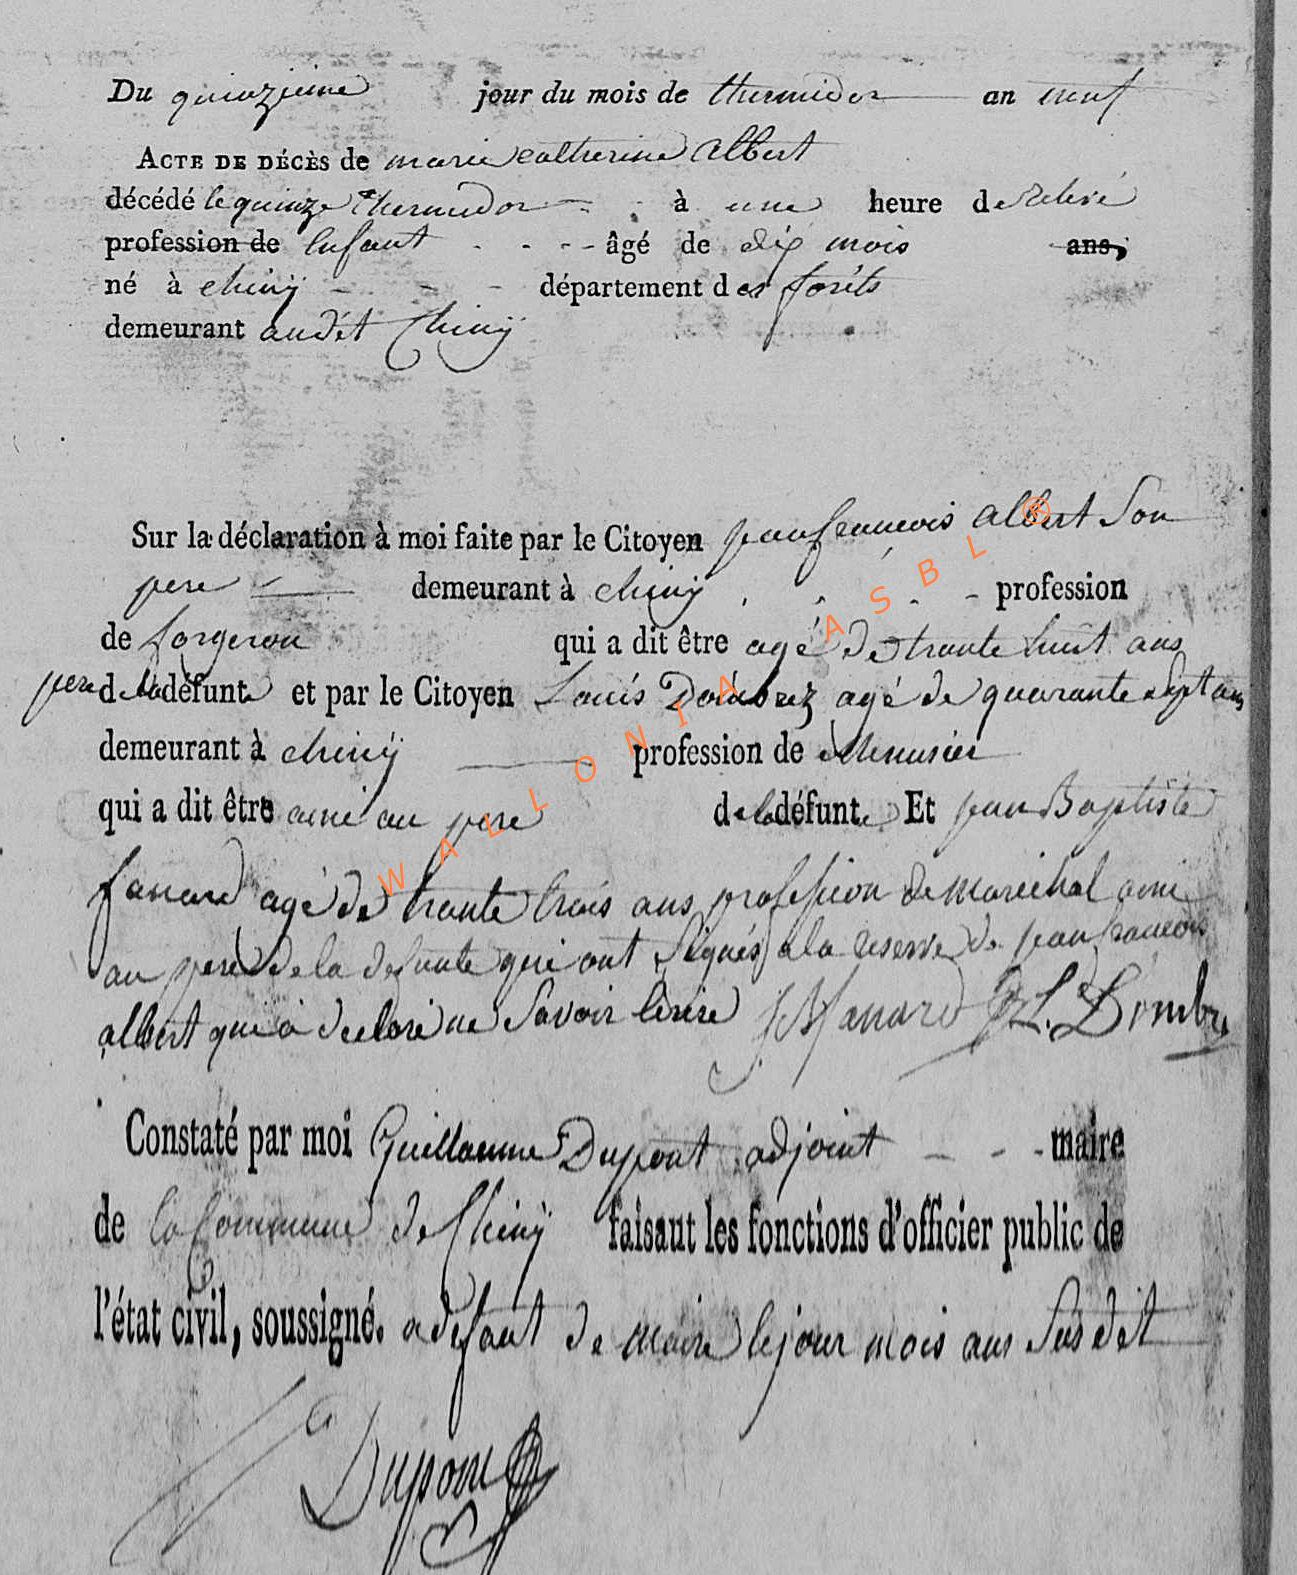 Du quinzieme jour du mois de thermidor an neuf
ACTE DE DÉCÈS de marie catherine albert
décédé le quinze thermidor à une heure de relevé
profession de Enfant âgé de dix mois ans,
né à chinÿ département des forêts
demeurant audit Chinÿ
Sur la déclaration à moi faite par le Citoyen jean francois albert Son
pere demeurant à chinÿ profession
de forgeron qui a dit être agé de trante huit ans
pere de la défunte et par le Citoyen Louis Dombrez agé de quarante Sept ans
demeurant à chinÿ profession de Menusier
qui a dit être ami au pere de la défunte Et jean Baptiste
fanard agé de trante trois ans profession de marechal ami
au pere de la defunte qui ont Signés a la reserve de jean francois
albert qui à declaré ne Savoir Ecrire JBfanard L. Dombre
Constaté par moi Guillaume Dupont adjoint maire
de la Commune de Chinÿ faisant les fonctions d'officier public de
l'état civil, soussigné. a defaut de maire le jour mois an Sus dit
Dupont
WALLONIA ASBL ®